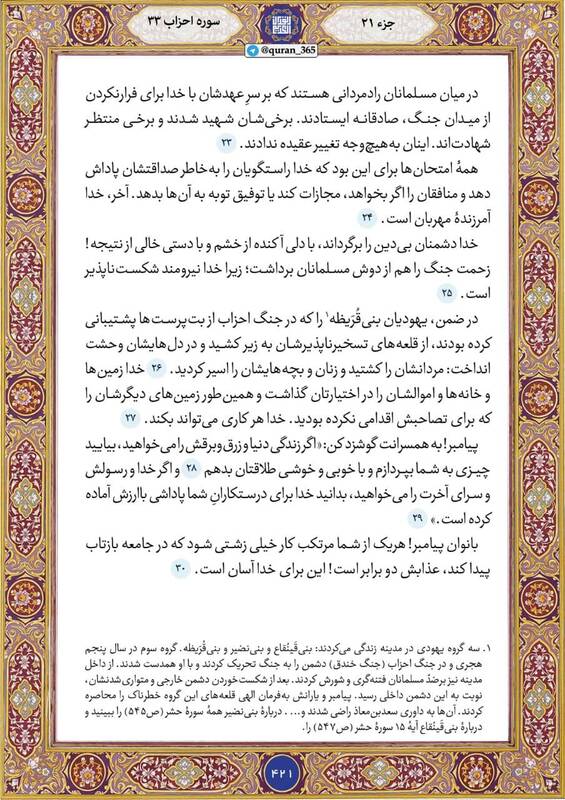 جزء ۲۱
سوره احزاب ۳۳
@quran_365
در میان مسلمانان رادمردانی هستند که بر سرِ عهدشان با خدا برای فرارنکردن
از میدان جنگ، صادقانه ایستادند. برخی‌شان شهید شدند و برخی منتظر
شهادت‌اند. اینان به‌هیچ‌وجه تغییر عقیده ندادند. ۲۳
همهٔ امتحان‌ها برای این بود که خدا راستگویان را به‌خاطر صداقتشان پاداش
دهد و منافقان را اگر بخواهد، مجازات کند یا توفیق توبه به آن‌ها بدهد. آخر، خدا
آمرزندهٔ مهربان است. ۲۴
خدا دشمنان بی‌دین را برگرداند، با دلی آکنده از خشم و با دستی خالی از نتیجه!
زحمت جنگ را هم از دوش مسلمانان برداشت؛ زیرا خدا نیرومند شکست‌ناپذیر
است. ۲۵
در ضمن، یهودیان بنی‌قُرَیظه۱ را که در جنگ احزاب از بت‌پرست‌ها پشتیبانی
کرده بودند، از قلعه‌های تسخیرناپذیرشان به زیر کشید و در دل‌هایشان وحشت
انداخت: مردانشان را کشتید و زنان و بچه‌هایشان را اسیر کردید. ۲۶ خدا زمین‌ها
و خانه‌ها و اموالشان را در اختیارتان گذاشت و همین‌طور زمین‌های دیگرشان را
که برای تصاحبش اقدامی نکرده بودید. خدا هر کاری می‌تواند بکند. ۲۷
پیامبر! به همسرانت گوشزد کن: «اگر زندگی دنیا و زرق‌وبرقش را می‌خواهید، بیایید
چیزی به شما بپردازم و با خوبی و خوشی طلاقتان بدهم ۲۸ و اگر خدا و رسولش
و سرای آخرت را می‌خواهید، بدانید خدا برای درستکارانِ شما پاداشی باارزش آماده
کرده است.» ۲۹
بانوان پیامبر! هریک از شما مرتکب کار خیلی زشتی شود که در جامعه بازتاب
پیدا کند، عذابش دو برابر است! این برای خدا آسان است. ۳۰
۱. سه گروه یهودی در مدینه زندگی می‌کردند: بنی‌قَینُقاع و بنی‌نضیر و بنی‌قُرَیظه. گروه سوم در سال پنجم
هجری و در جنگ احزاب (جنگ خندق) دشمن را به جنگ تحریک کردند و با او همدست شدند. از داخل
مدینه نیز برضدّ مسلمانان فتنه‌گری و شورش کردند. بعد از شکست‌خوردن دشمن خارجی و متواری‌شدنشان،
نوبت به این دشمن داخلی رسید. پیامبر و یارانش به‌فرمان الهی قلعه‌های این گروه خطرناک را محاصره
کردند. آن‌ها به داوری سعدبن‌معاذ راضی شدند و... . دربارهٔ بنی‌نضیر همهٔ سورهٔ حشر (ص۵۴۵) را ببینید و
دربارهٔ بنی‌قَینُقاع آیهٔ ۱۵ سورهٔ حشر (ص۵۴۷) را.
۴۲۱